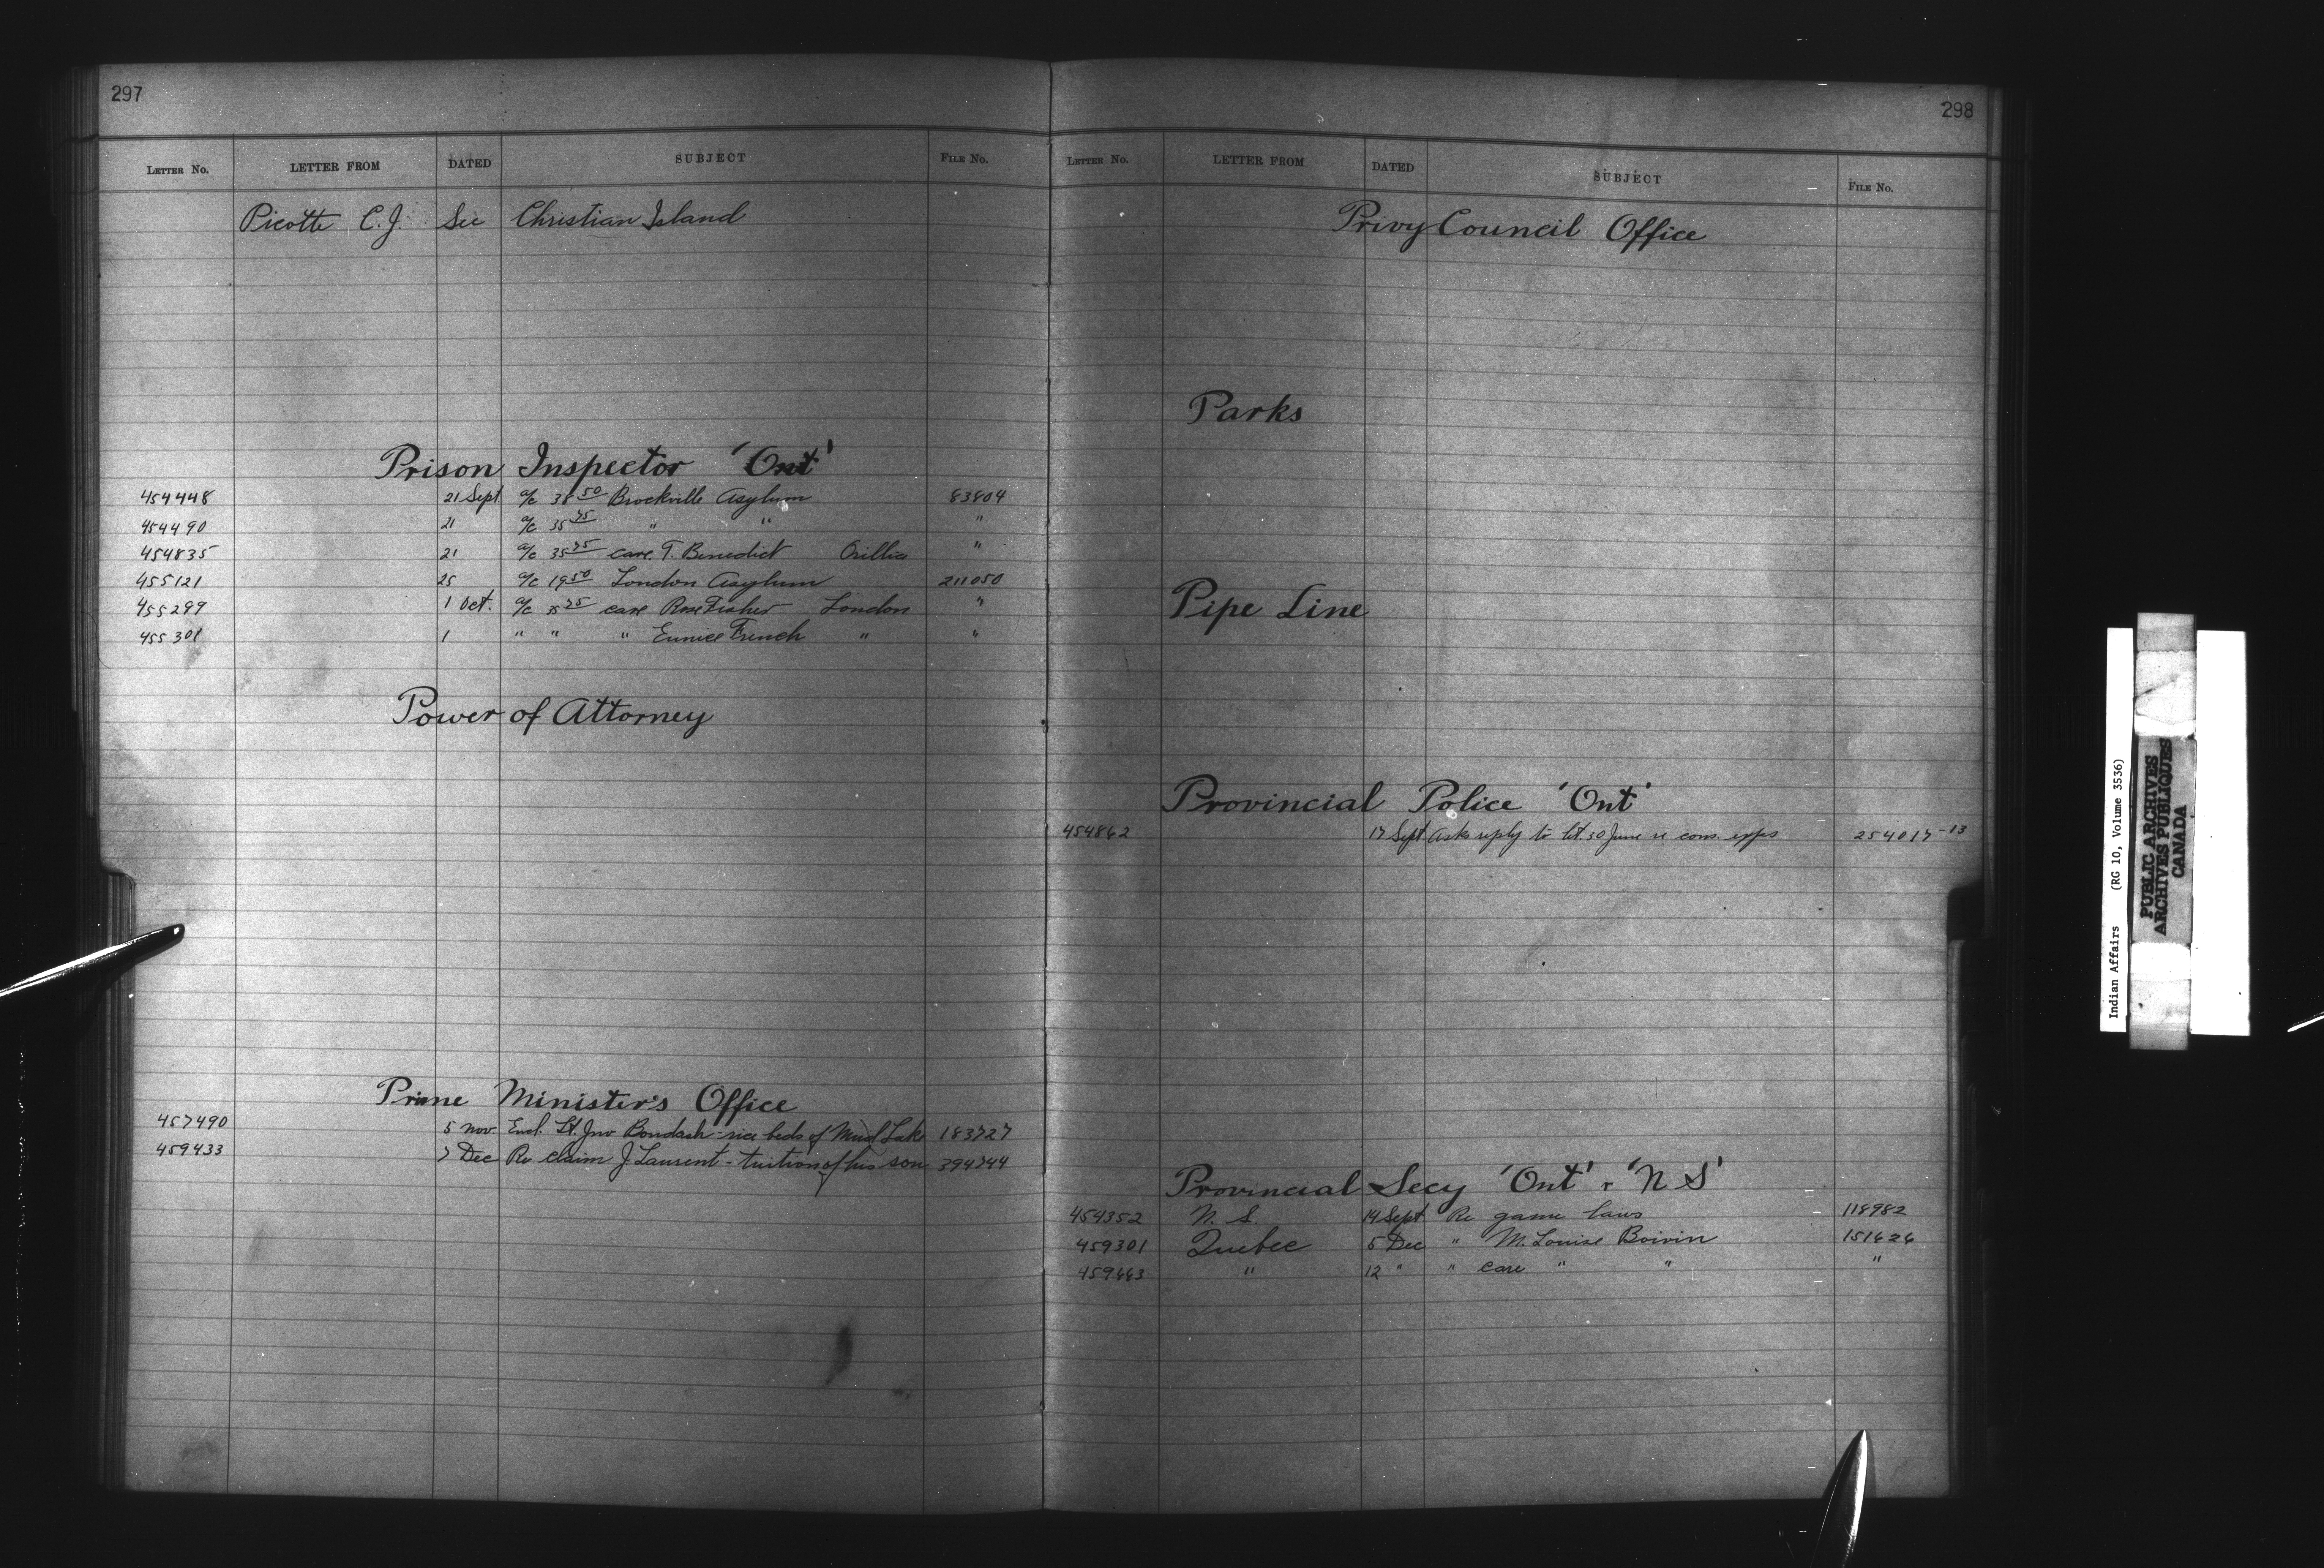 297
LETTER NO. LETTER FROM DATED SUBJECT FILE NO.
Picotte C.J. See Christian Island
Prison Inspector 'Ont'
454448 21 Sept a/c 38 50 Brockville Asylum 83804
454490 21 a/c 35 75 " " "
454835 21 a/c 35 75 care T. Benedict Orillia "
455121 25 a/c 19 50 London Asylum 211050
455299 1 Oct. a/c 25 care Rose Fisher London "
455301 1 " " " Eunice French " "
Power of Attorney
Prime Minister's Office
457490 5 Nov. Encl. Lt. Jno Bondash - rice beds of Mud Lake 183727
459433 7 Dec Re claim J Laurent - tuition of his son 394744
298
LETTER NO. LETTER FROM DATED SUBJECT FILE NO.
Privy Council Office
Parks
Pipe Line
Provincial Police 'Ont'
454862 17 Sept Asks reply to let. 30 June re cons. exps 254017-13
Provincial Secy 'Ont' + 'N S'
454352 N. S. 14 Sept Re game laws 118982
459301 Quebec 5 Dec " M. Louise Boivin 151626
459663 " 12 " " care " " "
Indian Affairs (RG 10, Volume 3536)
PUBLIC ARCHIVES
ARCHIVES PUBLIQUES
CANADA